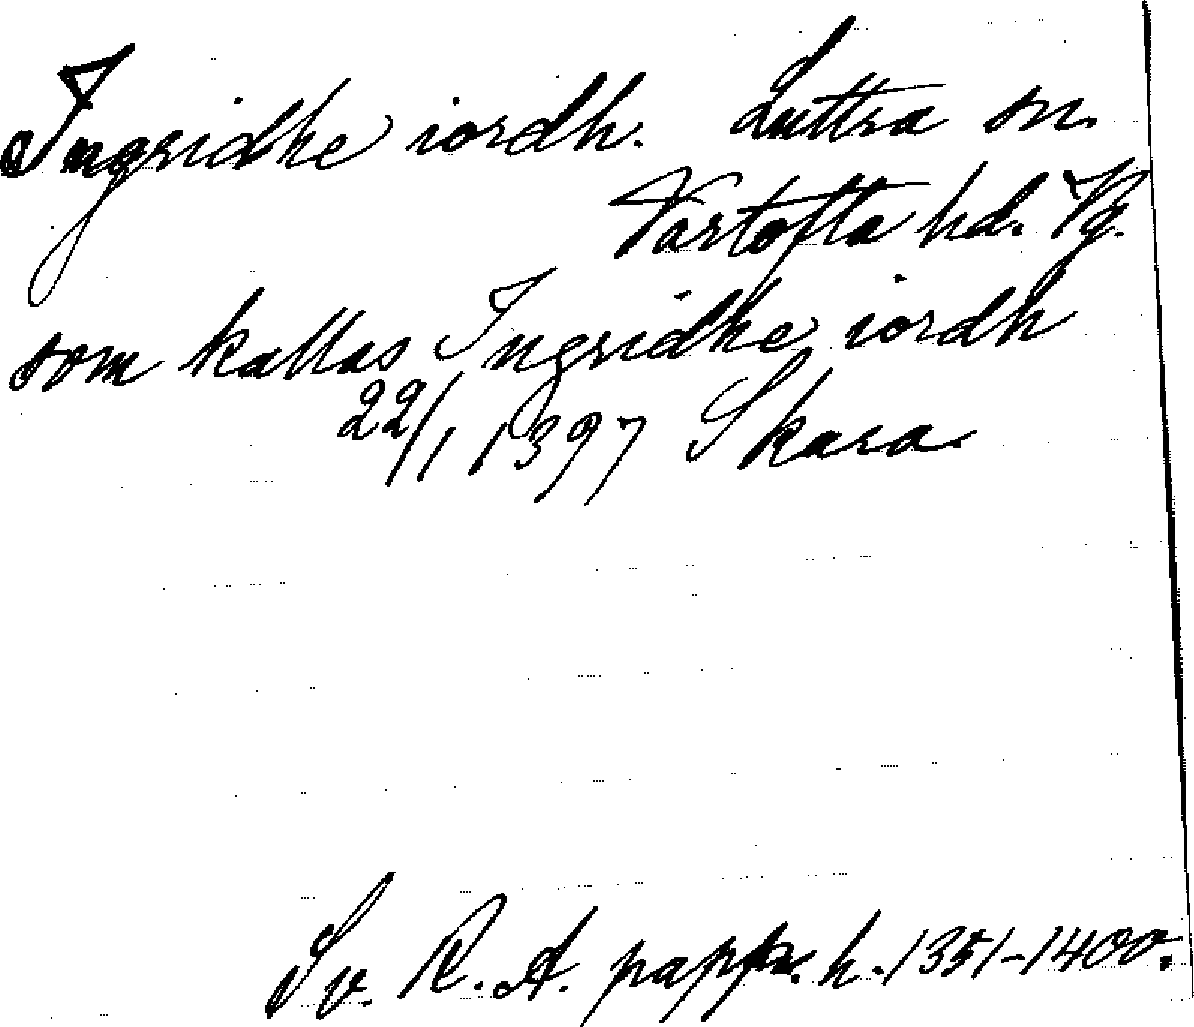 Ingridhe iordh. Luttra sn.
Vartofta hd. Vg.
som kallas Ingridhe iordh
22/1 1397 Skara
Sv. R. A. papp. h. 1351-1400.